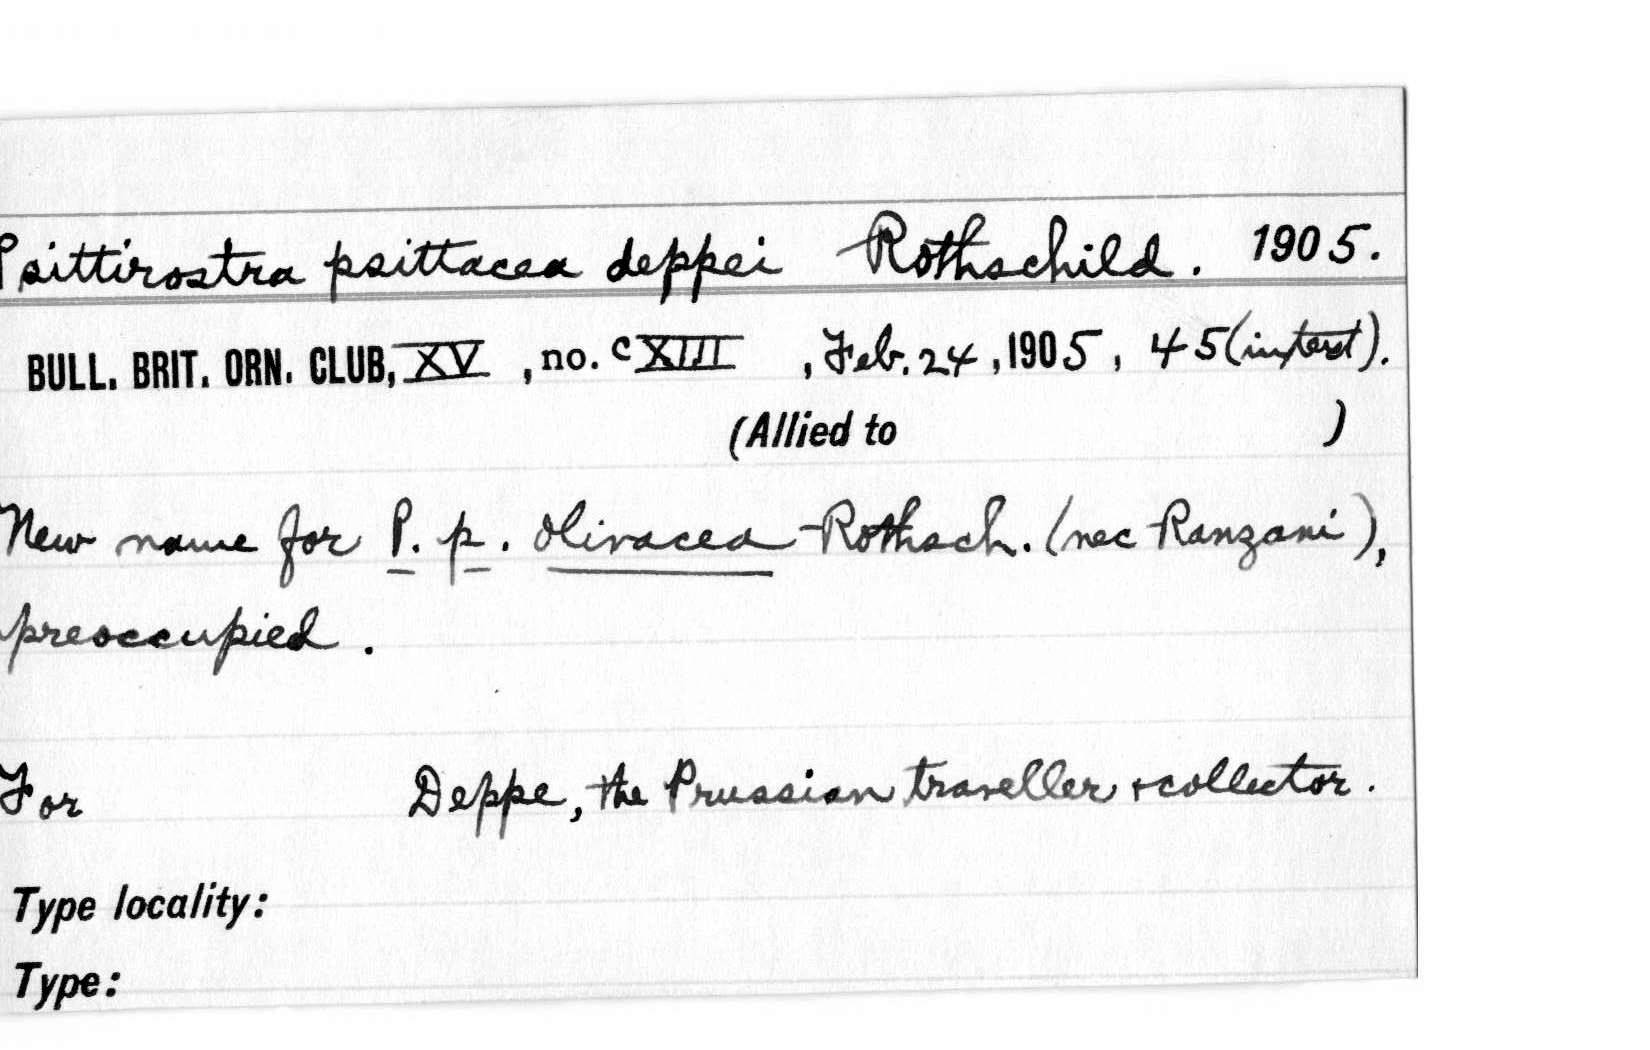 Psittirostra psittacea deppei Rothschild. 1905.
BULL. BRIT. ORN. CLUB, XV, no. CXIII, Feb. 24, 1905, 45 (in text).
(Allied to )
New name for P. p. olivacea Rothsch. (nec Ranzani),
preoccupied.
For Deppe, the Prussian traveller + collector.
Type locality:
Type: